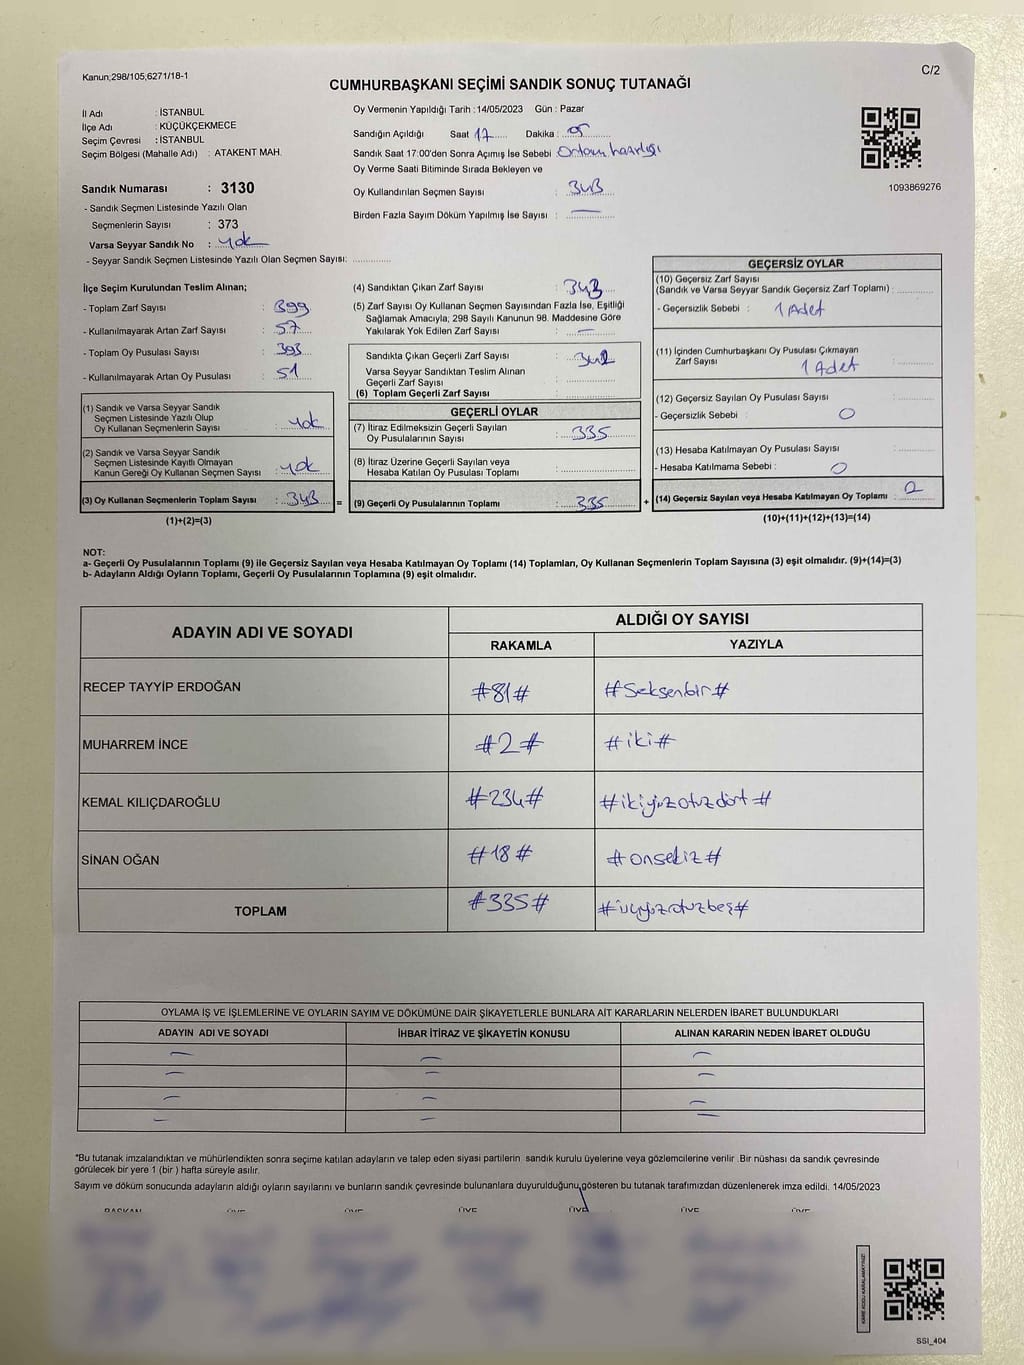 Kanun;298/105,6271/18-1
C/2
CUMHURBAŞKANI SEÇİMİ SANDIK SONUÇ TUTANAĞI
İl Adı : İSTANBUL
İlçe Adı : KÜÇÜKÇEKMECE
Seçim Çevresi : İSTANBUL
Seçim Bölgesi (Mahalle Adı) : ATAKENT MAH.
Sandık Numarası : 3130
- Sandık Seçmen Listesinde Yazılı Olan
Seçmenlerin Sayısı : 373
Varsa Seyyar Sandık No : yok
- Seyyar Sandık Seçmen Listesinde Yazılı Olan Seçmen Sayısı:
Oy Vermenin Yapıldığı Tarih : 14/05/2023 Gün : Pazar
Sandığın Açıldığı Saat 17 Dakika : 05
Sandık Saat 17:00'den Sonra Açımış İse Sebebi Ortam hazırlığı
Oy Verme Saati Bitiminde Sırada Bekleyen ve
Oy Kullandırılan Seçmen Sayısı : 343
Birden Fazla Sayım Döküm Yapılmış İse Sayısı : —
1093869276
İlçe Seçim Kurulundan Teslim Alınan;
- Toplam Zarf Sayısı : 399
- Kullanılmayarak Artan Zarf Sayısı : 57
- Toplam Oy Pusulası Sayısı : 393
- Kullanılmayarak Artan Oy Pusulası : 51
(1) Sandık ve Varsa Seyyar Sandık
Seçmen Listesinde Yazılı Olup
Oy Kullanan Seçmenlerin Sayısı : yok
(2) Sandık ve Varsa Seyyar Sandık
Seçmen Listesinde Kayıtlı Olmayan
Kanun Gereği Oy Kullanan Seçmen Sayısı : yok
(3) Oy Kullanan Seçmenlerin Toplam Sayısı : 343 =
(1)+(2)=(3)
(4) Sandıktan Çıkan Zarf Sayısı : 343
(5) Zarf Sayısı Oy Kullanan Seçmen Sayısından Fazla İse, Eşitliği
Sağlamak Amacıyla; 298 Sayılı Kanunun 98. Maddesine Göre
Yakılarak Yok Edilen Zarf Sayısı : —
Sandıkta Çıkan Geçerli Zarf Sayısı : 342
Varsa Seyyar Sandıktan Teslim Alınan
Geçerli Zarf Sayısı :
(6) Toplam Geçerli Zarf Sayısı :
GEÇERLİ OYLAR
(7) İtiraz Edilmeksizin Geçerli Sayılan
Oy Pusulalarının Sayısı : 335
(8) İtiraz Üzerine Geçerli Sayılan veya
Hesaba Katılan Oy Pusulası Toplamı :
(9) Geçerli Oy Pusulalarının Toplamı : 335 +
GEÇERSİZ OYLAR
(10) Geçersiz Zarf Sayısı
(Sandık ve Varsa Seyyar Sandık Geçersiz Zarf Toplamı) :
- Geçersizlik Sebebi : 1 Adet
(11) İçinden Cumhurbaşkanı Oy Pusulası Çıkmayan
Zarf Sayısı : 1 Adet
(12) Geçersiz Sayılan Oy Pusulası Sayısı :
- Geçersizlik Sebebi : 0
(13) Hesaba Katılmayan Oy Pusulası Sayısı :
- Hesaba Katılmama Sebebi : 0
(14) Geçersiz Sayılan veya Hesaba Katılmayan Oy Toplamı : 2
(10)+(11)+(12)+(13)=(14)
NOT:
a- Geçerli Oy Pusulalarının Toplamı (9) ile Geçersiz Sayılan veya Hesaba Katılmayan Oy Toplamı (14) Toplamları, Oy Kullanan Seçmenlerin Toplam Sayısına (3) eşit olmalıdır. (9)+(14)=(3)
b- Adayların Aldığı Oyların Toplamı, Geçerli Oy Pusulalarının Toplamına (9) eşit olmalıdır.
ADAYIN ADI VE SOYADI
ALDIĞI OY SAYISI
RAKAMLA YAZIYLA
RECEP TAYYİP ERDOĞAN #81# #Seksenbir#
MUHARREM İNCE #2# #iki#
KEMAL KILIÇDAROĞLU #234# #ikiyüzotuzdört#
SİNAN OĞAN #18# #onsekiz#
TOPLAM #335# #üçyüzotuzbeş#
OYLAMA İŞ VE İŞLEMLERİNE VE OYLARIN SAYIM VE DÖKÜMÜNE DAİR ŞİKAYETLERLE BUNLARA AİT KARARLARIN NELERDEN İBARET BULUNDUKLARI
ADAYIN ADI VE SOYADI İHBAR İTİRAZ VE ŞİKAYETİN KONUSU ALINAN KARARIN NEDEN İBARET OLDUĞU
— — —
— — —
— — —
— — —
*Bu tutanak imzalandıktan ve mühürlendikten sonra seçime katılan adayların ve talep eden siyasi partilerin sandık kurulu üyelerine veya gözlemcilerine verilir .Bir nüshası da sandık çevresinde
görülecek bir yere 1 (bir ) hafta süreyle asılır.
Sayım ve döküm sonucunda adayların aldığı oyların sayılarını ve bunların sandık çevresinde bulunanlara duyurulduğunu gösteren bu tutanak tarafımızdan düzenlenerek imza edildi. 14/05/2023
BAŞKAN ÜYE ÜYE ÜYE ÜYE ÜYE ÜYE
KARE KODU KARALAMAYINIZ!
SSI_404